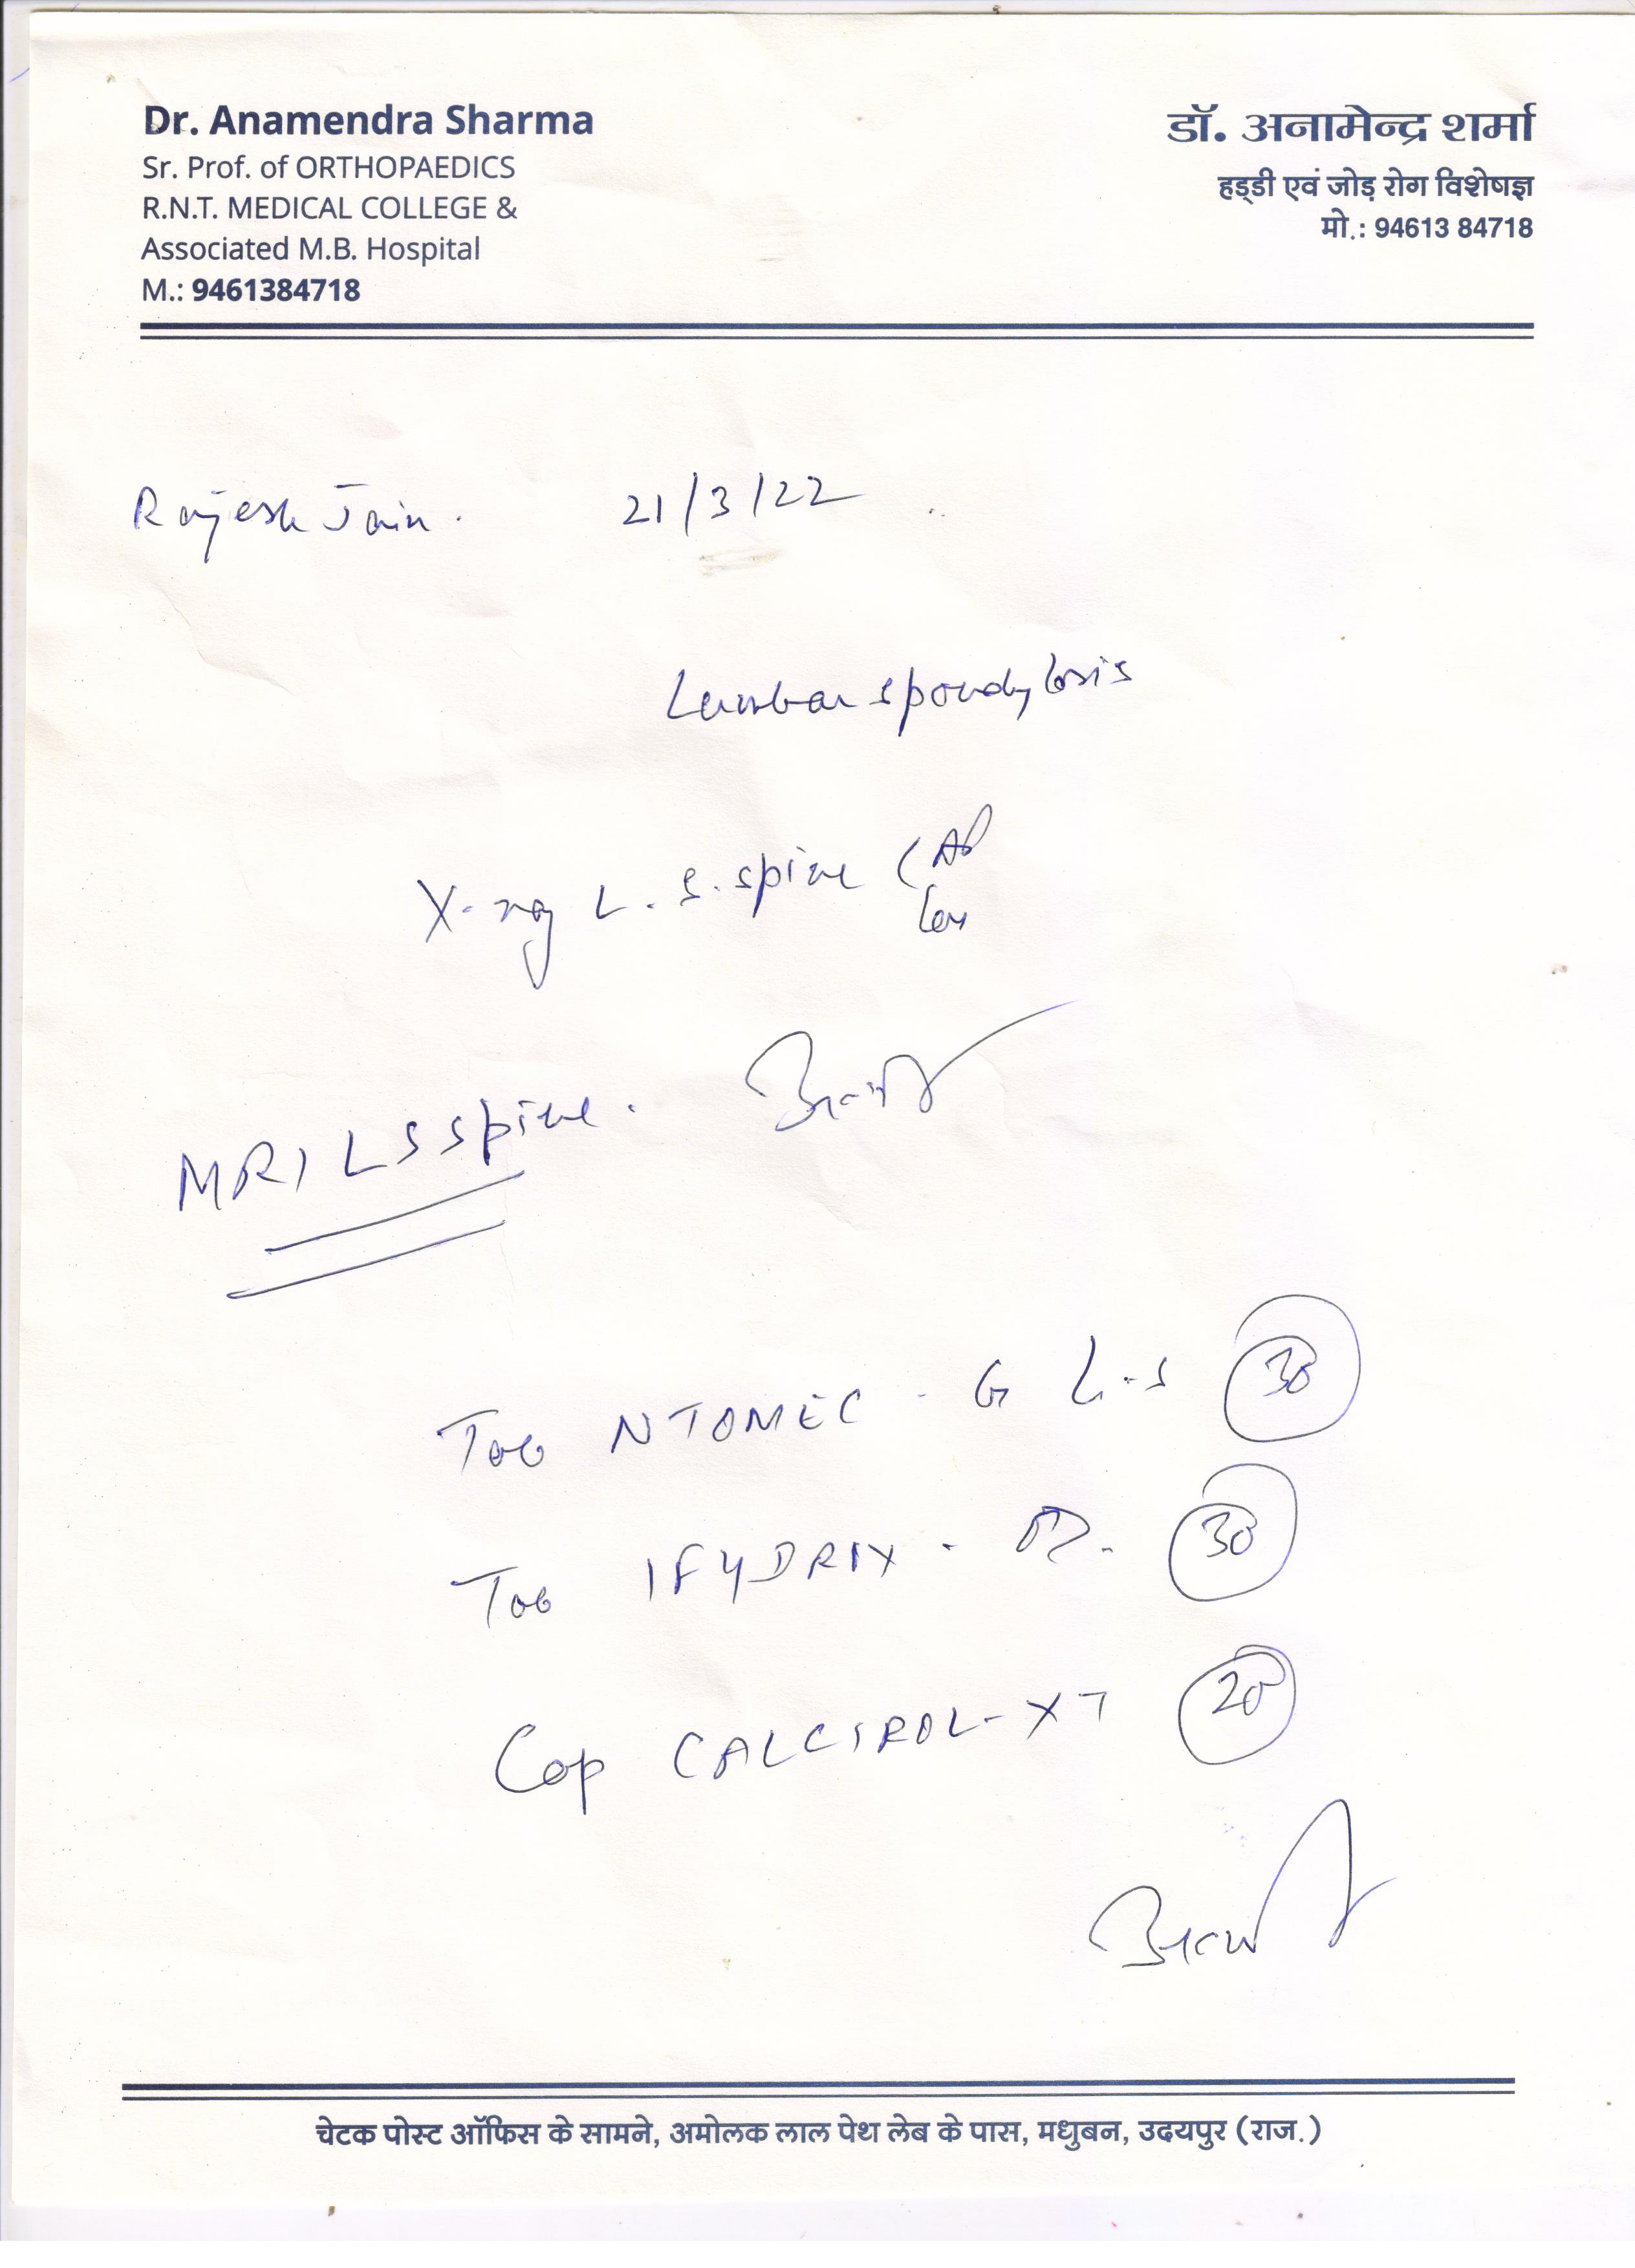 Dr. Anamendra Sharma
Sr. Prof. of ORTHOPAEDICS
R.N.T. MEDICAL COLLEGE &
Associated M.B. Hospital
M.: 9461384718
डॉ. अनामेन्द्र शर्मा
हड्डी एवं जोड़ रोग विशेषज्ञ
मो.: 94613 84718
Rajesh Jain. 21/3/22
Lumbar spondylosis
X-ray L.S. spine (AP
Lat
MRI LS spine.
Tab NTOMEC - G 30
Tab IFYDRIX - 30
Cap CALCIROL-XT 20
चेटक पोस्ट ऑफिस के सामने, अमोलक लाल पेथ लेब के पास, मधुबन, उदयपुर (राज.)